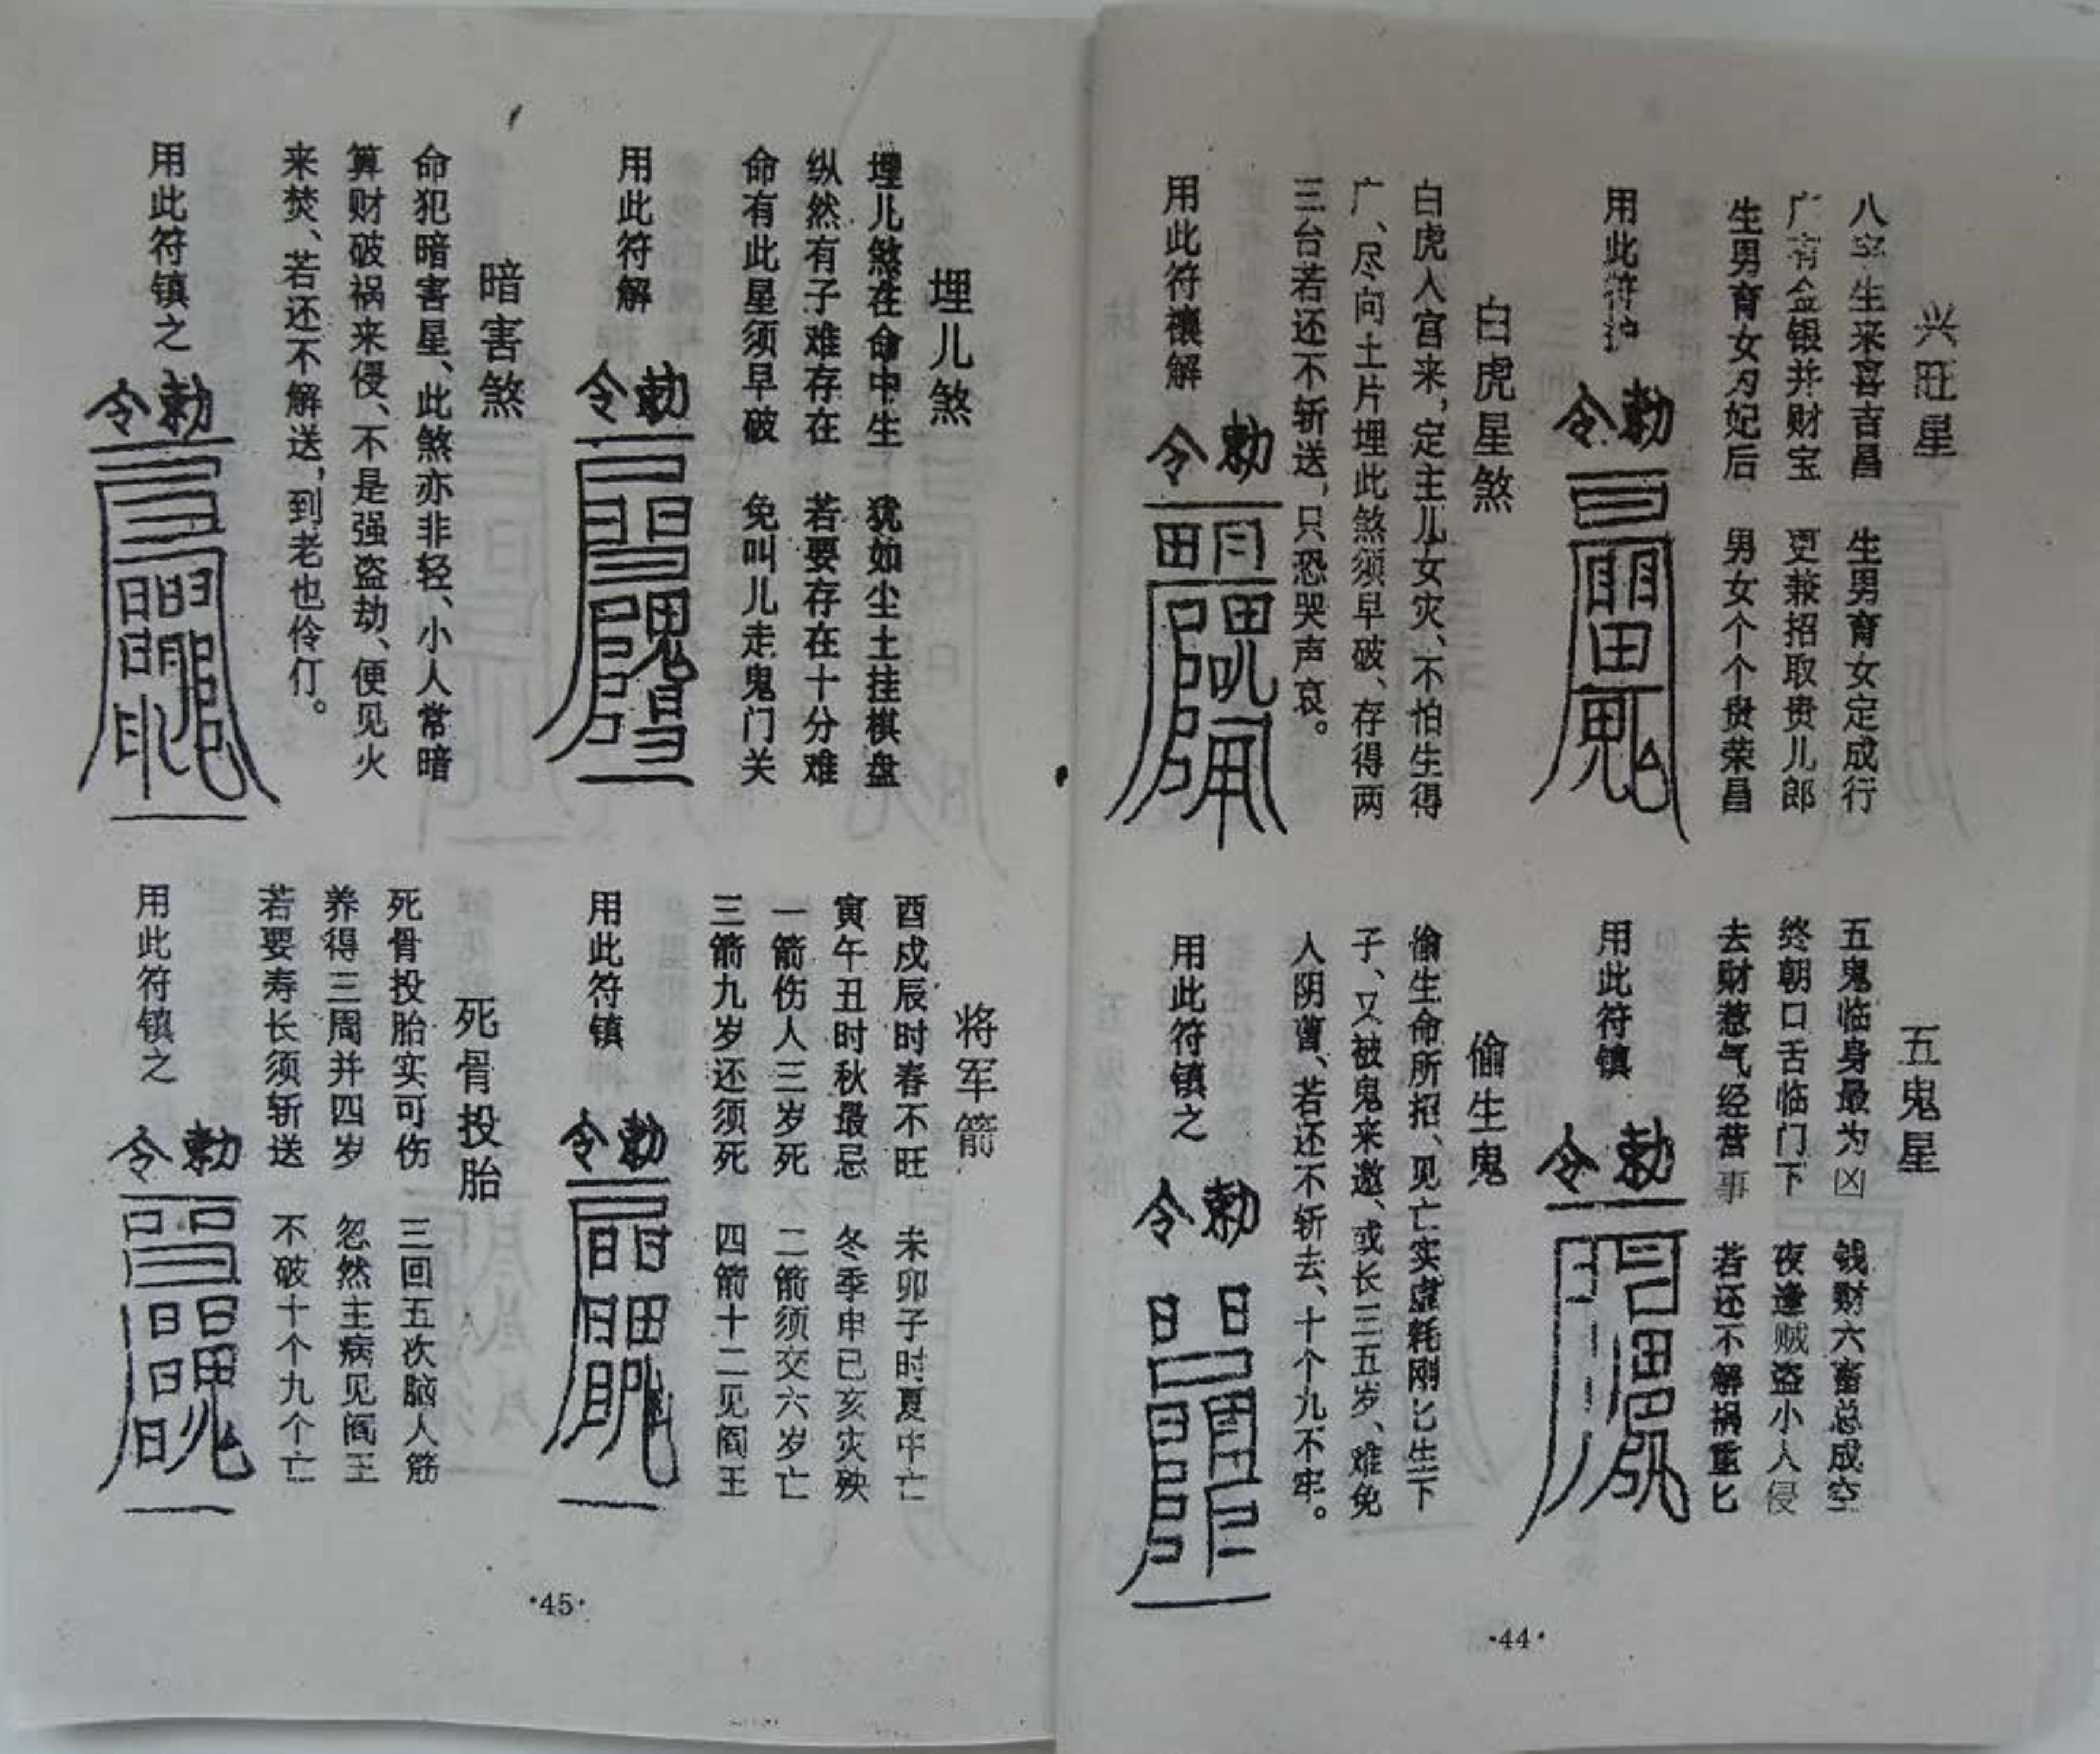 兴旺星
八字生来喜吉昌　生男育女定成行
广有金银并财宝　更兼招取贵儿郎
生男育女为妃后　男女个个贵荣昌
用此符护
敕令
白虎星煞
白虎人宫来，定主儿女灾、不怕生得
广、尽向土片埋此煞须早破、存得两
三台若还不斩送，只恐哭声哀。
用此符禳解
敕令
五鬼星
五鬼临身最为凶　钱财六畜总成空
终朝口舌临门下　夜逢贼盗小人侵
去财惹气经营事　若还不解祸重匕
用此符镇
敕令
偷生鬼
偷生命所招、见亡实虚耗刚匕生下
子、又被鬼来邀、或长三五岁、难免
人阴曹、若还不斩去、十个九不牢。
用此符镇之
敕令
·44·
埋儿煞
埋儿煞在命中生　犹如尘土挂棋盘
纵然有子难存在　若要存在十分难
命有此星须早破　免叫儿走鬼门关
用此符解
敕令
暗害煞
命犯暗害星、此煞亦非轻、小人常暗
算财破祸来侵、不是强盗劫、便见火
来焚、若还不解送，到老也伶仃。
用此符镇之
敕令
将军箭
酉戍辰时春不旺　未卯子时夏中亡
寅午丑时秋最忌　冬季申已亥灾殃
一箭伤人三岁死　二箭须交六岁亡
三箭九岁还须死　四箭十二见阎王
用此符镇
敕令
死骨投胎
死骨投胎实可伤　三回五次脑人筋
养得三周并四岁　忽然主病见阎王
若要寿长须斩送　不破十个九个亡
用此符镇之
敕令
·45·